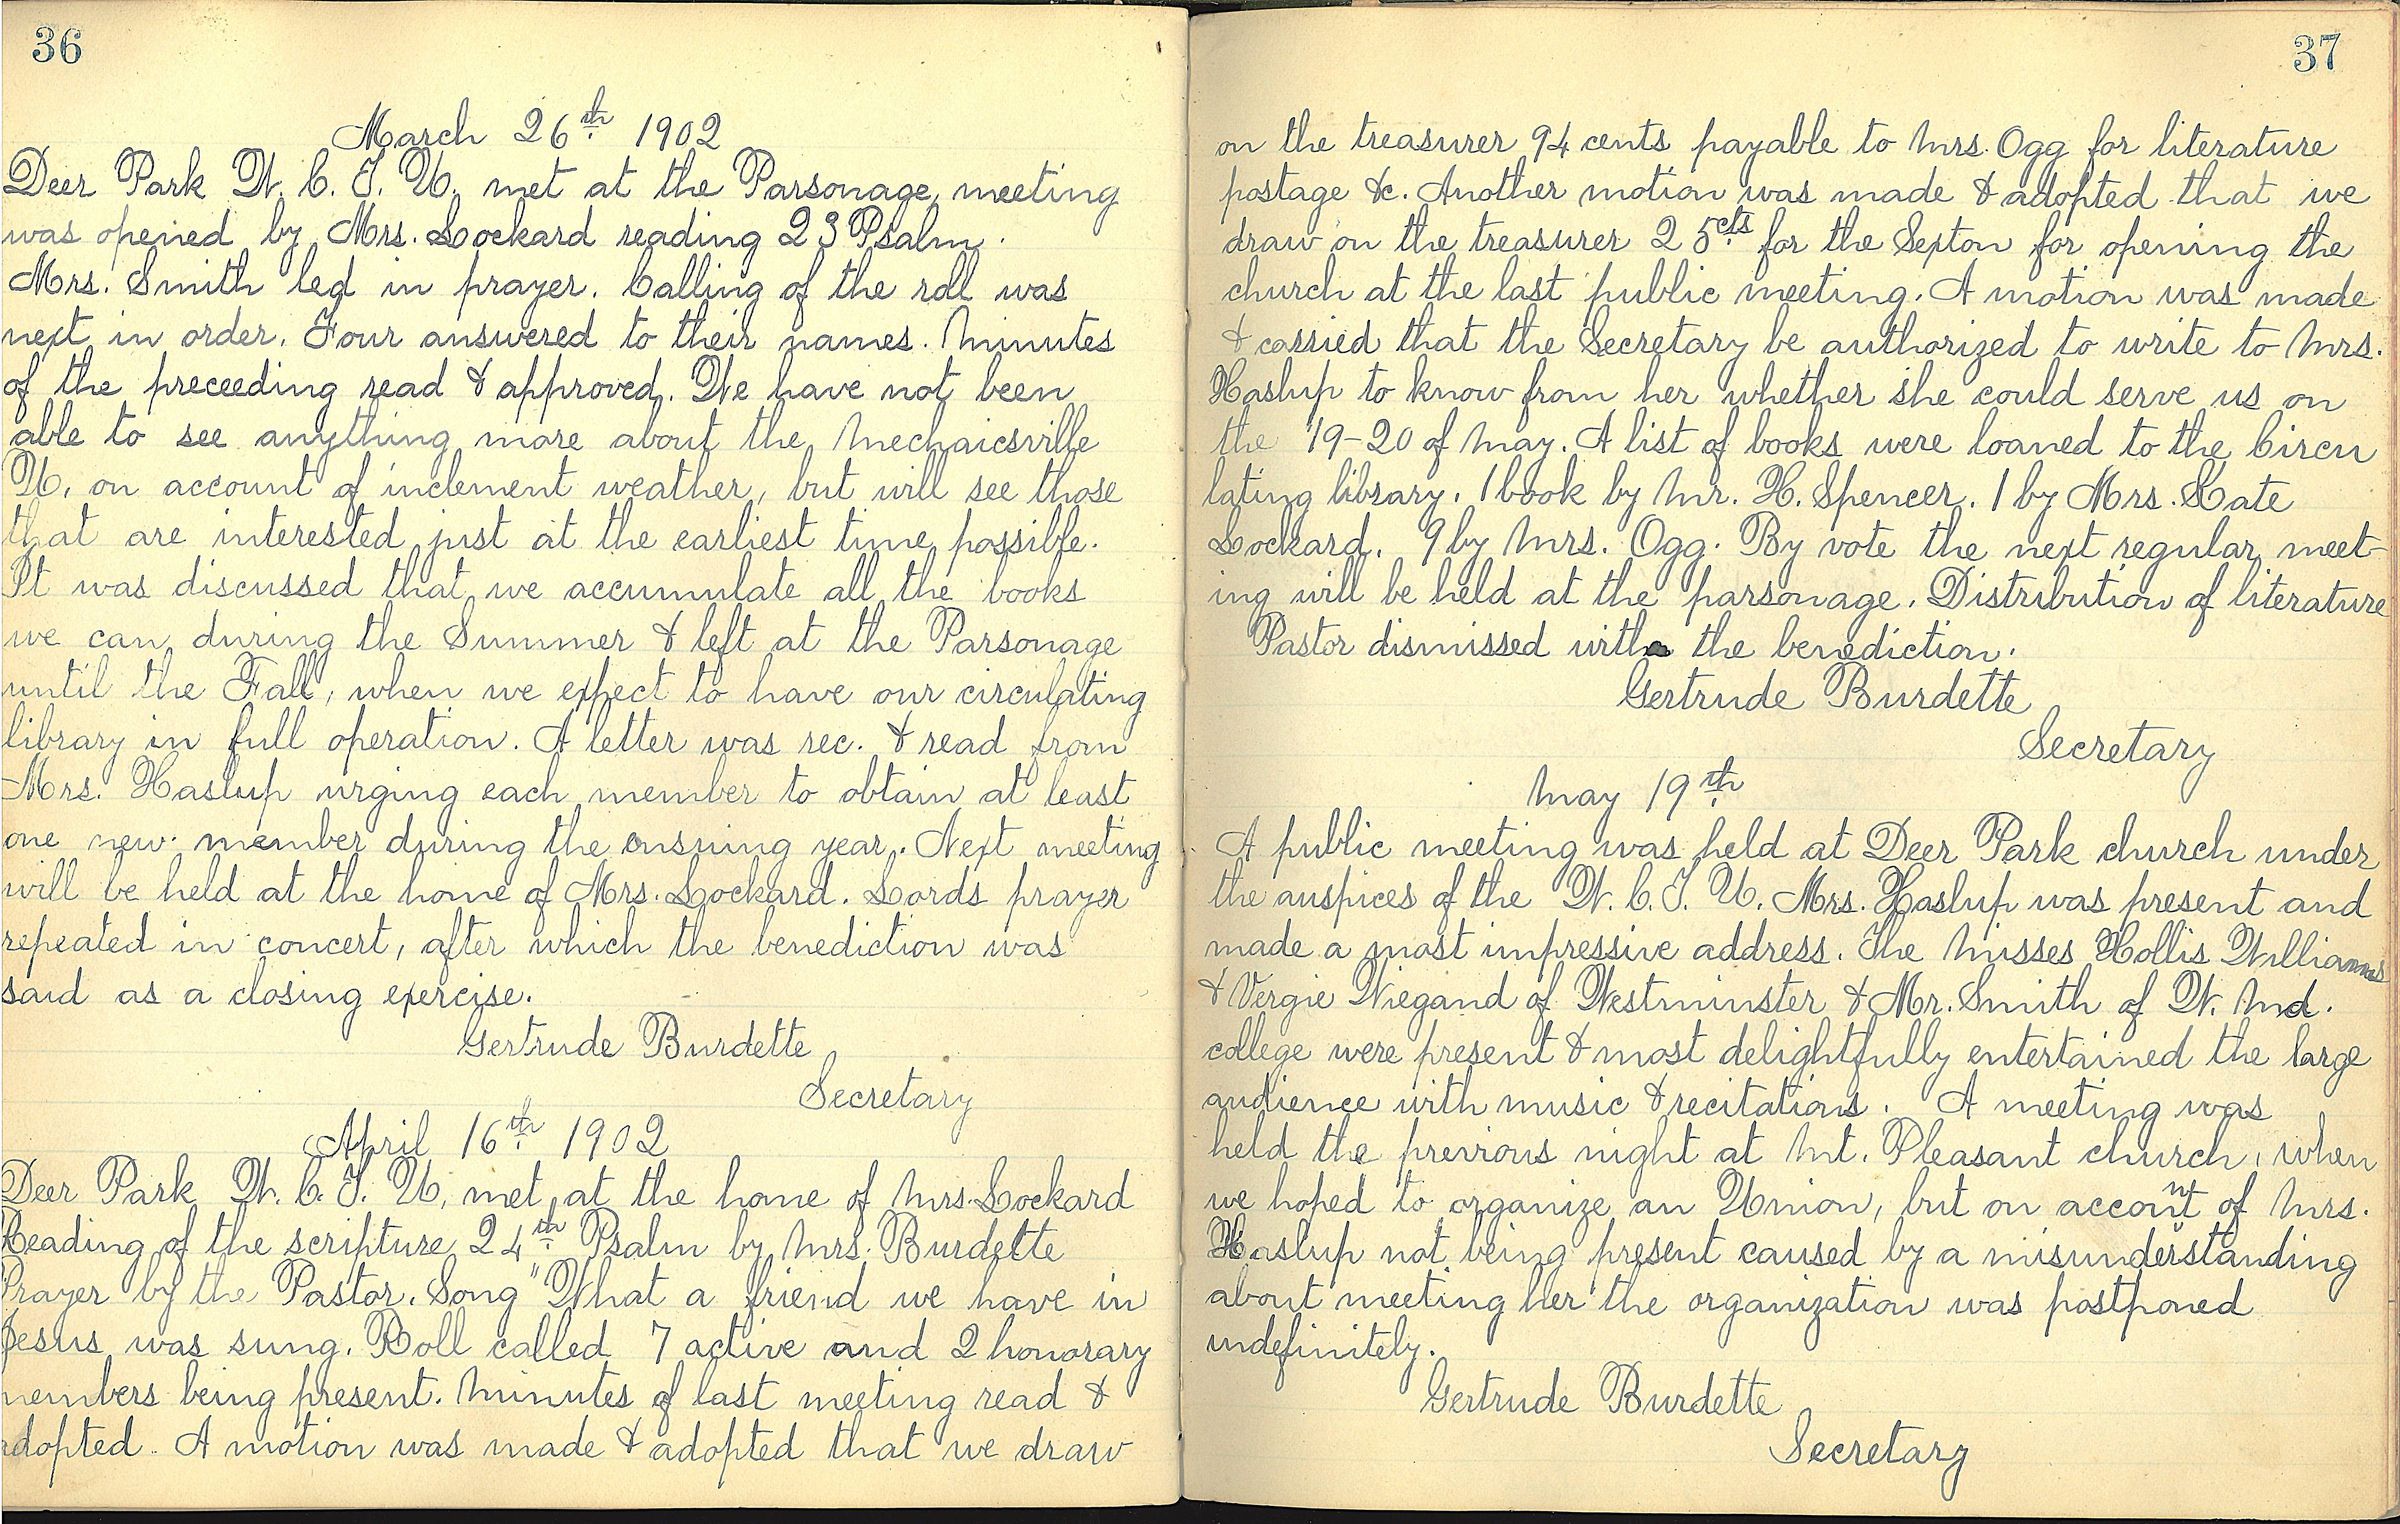 36
March 26th 1902
Deer Park W. C. T. U. met at the Parsonage, meeting
was opened by Mrs. Lockard reading 23 Psalm.
Mrs. Smith led in prayer. Calling of the roll was
next in order. Four answered to their names. Minutes
of the preceeding read & approved. We have not been
able to see anything more about the Mechaicsville
U. on account of inclement weather, but will see those
that are interested just at the earliest time possible.
It was discussed that we accumulate all the books
we can during the Summer & left at the Parsonage
until the Fall, when we expect to have our circulating
library in full operation. A letter was rec. & read from
Mrs. Haslup urging each member to obtain at least
one new member during the ensuing year. Next meeting
will be held at the home of Mrs. Lockard. Lords prayer
repeated in concert, after which the benediction was
said as a closing exercise.
Gertrude Burdette
Secretary
April 16th 1902
Deer Park W. C. T. U. met at the home of Mrs. Lockard
Reading of the scripture 24th Psalm by Mrs. Burdette
Prayer by the Pastor. Song "What a friend we have in
Jesus was sung. Roll called 7 active and 2 honorary
members being present. Minutes of last meeting read &
adopted. A motion was made & adopted that we draw
37
on the treasurer 94 cents payable to Mrs. Ogg for literature
postage &c. Another motion was made & adopted that we
draw on the treasurer 25cts for the Sexton for opening the
church at the last public meeting. A motion was made
& carried that the Secretary be authorized to write to Mrs.
Haslup to know from her whether she could serve us on
the 19-20 of May. A list of books were loaned to the Circu
lating library. 1 book by Mr. H. Spencer. 1 by Mrs. Kate
Lockard. 9 by Mrs. Ogg. By vote the next regular meet-
ing will be held at the parsonage. Distribution of literature
Pastor dismissed with the benediction.
Gertrude Burdette
Secretary
May 19th
A public meeting was held at Deer Park church under
the auspices of the W. C. T. U. Mrs. Haslup was present and
made a most impressive address. The Misses Hollis Williams
& Vergie Wiegand of Westminster & Mr. Smith of W. Md.
college were present & most delightfully entertained the large
audience with music & recitations. A meeting was
held the previous night at Mt. Pleasant church, when
we hoped to organize an Union, but on account of Mrs.
Haslup not being present caused by a misunderstanding
about meeting her the organization was postponed
indefinitely.
Gertrude Burdette
Secretary